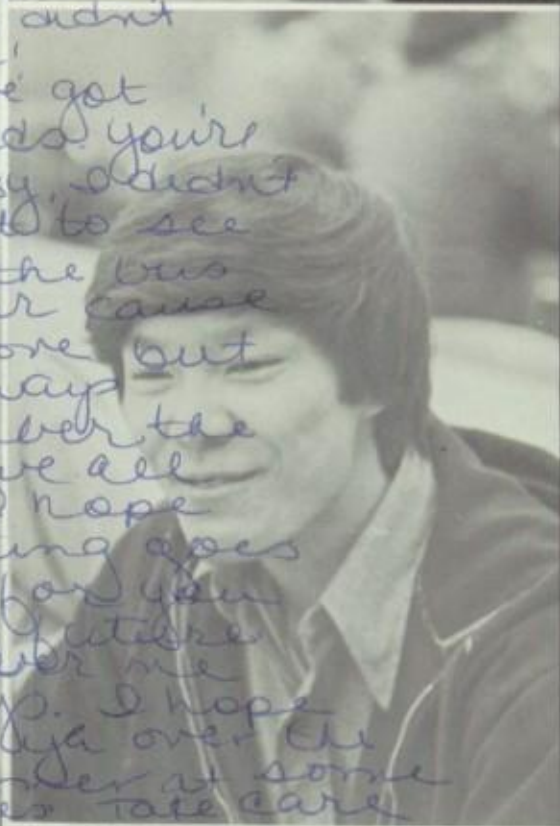 didnt
got
you're
I didnt
to see
the bus
cause
but
ways
ber the
ve all
hope
ing goes
for you
future
ver me
. I hope
ya over the
mer at some
Take care